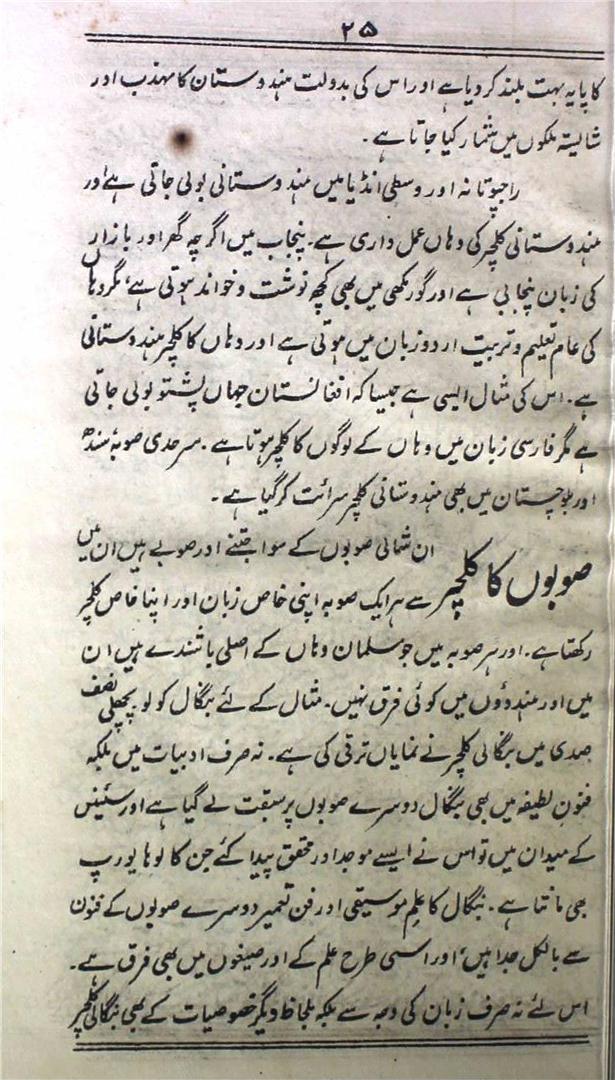 ۲۵
کا پایہ بہت بلند کر دیا ہے اور اس کی بدولت ہندوستان کا مہذب اور
شائستہ ملکوں میں شمار کیا جاتا ہے۔
راجپوتانہ اور وسطی انڈیا میں ہندوستانی بولی جاتی ہے اور
ہندوستانی کلچر کی وہاں عمل داری ہے۔ پنجاب میں اگرچہ گھر اور بازار
کی زبان پنجابی ہے اور گورمکھی میں بھی کچھ نوشت و خواند ہوتی ہے، مگر وہاں
کی عام تعلیم و تربیت اردو زبان میں ہوتی ہے اور وہاں کا کلچر ہندوستانی
ہے۔ اس کی مثال ایسی ہے جیسا کہ افغانستان جہاں پشتو بولی جاتی
ہے مگر فارسی زبان میں وہاں کے لوگوں کا کلچر ہوتا ہے۔ سرحدی صوبۂ سندھ
اور بلوچستان میں بھی ہندوستانی کلچر سرائت کر گیا ہے۔
صوبوں کا کلچر
ان شمالی صوبوں کے سوا جتنے اور صوبے ہیں ان میں
سے ہر ایک صوبہ اپنی خاص زبان اور اپنا خاص کلچر
رکھتا ہے۔ اور ہر صوبہ میں جو مسلمان وہاں کے اصلی باشندے ہیں ان
میں اور ہندوؤں میں کوئی فرق نہیں۔ مثال کے لئے بنگال کو لو پچھلی نصف
صدی میں بنگالی کلچر نے نمایاں ترقی کی ہے۔ نہ صرف ادبیات میں بلکہ
فنون لطیفہ میں بھی بنگال دوسرے صوبوں پر سبقت لے گیا ہے اور سئینس
کے میدان میں تو اس نے ایسے موجد اور محقق پیدا کئے جن کا لوہا یورپ
بھی مانتا ہے۔ بنگال کا علم موسیقی اور فن تعمیر دوسرے صوبوں کے فنون
سے بالکل جدا ہیں، اور اسی طرح علم کے اور صیغوں میں بھی فرق ہے۔
اس لئے نہ صرف زبان کی وجہ سے بلکہ بلحاظ دیگر خصوصیات کے بھی بنگالی کلچر